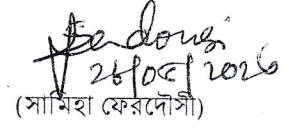 Ferdousi
২৮/০৫/২০২৬
(সামিহা ফেরদৌসী)